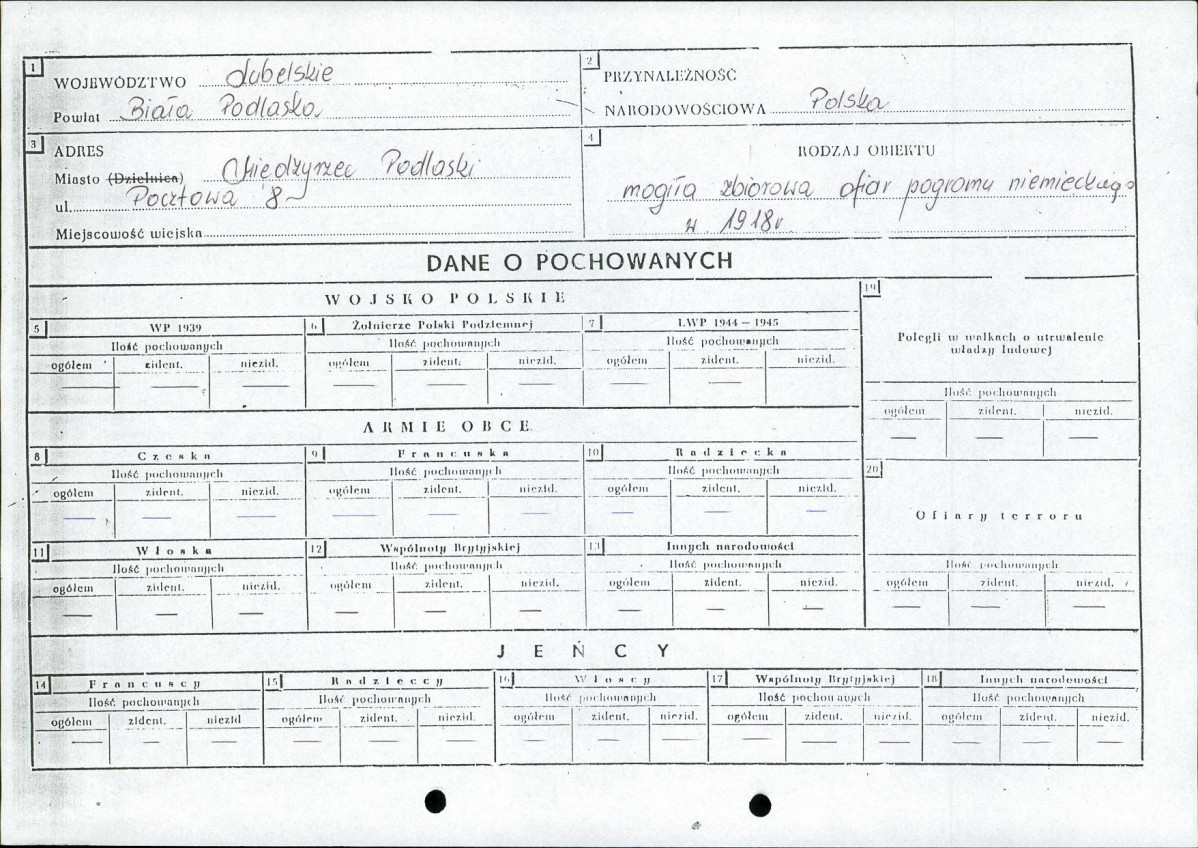 1 WOJEWÓDZTWO lubelskie
Powiat Biała Podlaska
2 PRZYNALEŻNOŚĆ
NARODOWOŚCIOWA Polska
3 ADRES
Miasto (Dzielnica) Międzyrzec Podlaski
ul. Pocztowa 8
Miejscowość wiejska
4 RODZAJ OBIEKTU
mogiła zbiorowa ofiar pogromu niemieckiego
w 1918r.
DANE O POCHOWANYCH
WOJSKO POLSKIE
5 WP 1939
Ilość pochowanych
ogółem zident. niezid.
— — —
6 Żołnierze Polski Podziemnej
Ilość pochowanych
ogółem zident. niezid.
— — —
7 LWP 1944 – 1945
Ilość pochowanych
ogółem zident. niezid.
— —
ARMIE OBCE
8 Czeska
Ilość pochowanych
ogółem zident. niezid.
— — —
9 Francuska
Ilość pochowanych
ogółem zident. niezid.
— — —
10 Radziecka
Ilość pochowanych
ogółem zident. niezid.
— — —
11 Włoska
Ilość pochowanych
ogółem zident. niezid.
— — —
12 Wspólnoty Brytyjskiej
Ilość pochowanych
ogółem zident. niezid.
— — —
13 Innych narodowości
Ilość pochowanych
ogółem zident. niezid.
— — —
19
Polegli w walkach o utrwalenie
władzy ludowej
Ilość pochowanych
ogółem zident. niezid.
— — —
20
Ofiary terroru
Ilość pochowanych
ogółem zident. niezid.
— — —
JEŃCY
14 Francuscy
Ilość pochowanych
ogółem zident. niezid
— — —
15 Radzieccy
Ilość pochowanych
ogółem zident. niezid.
— — —
16 Włoscy
Ilość pochowanych
ogółem zident. niezid.
— — —
17 Wspólnoty Brytyjskiej
Ilość pochowanych
ogółem zident. niezid.
— — —
18 Innych narodowości
Ilość pochowanych
ogółem zident. niezid.
— — —